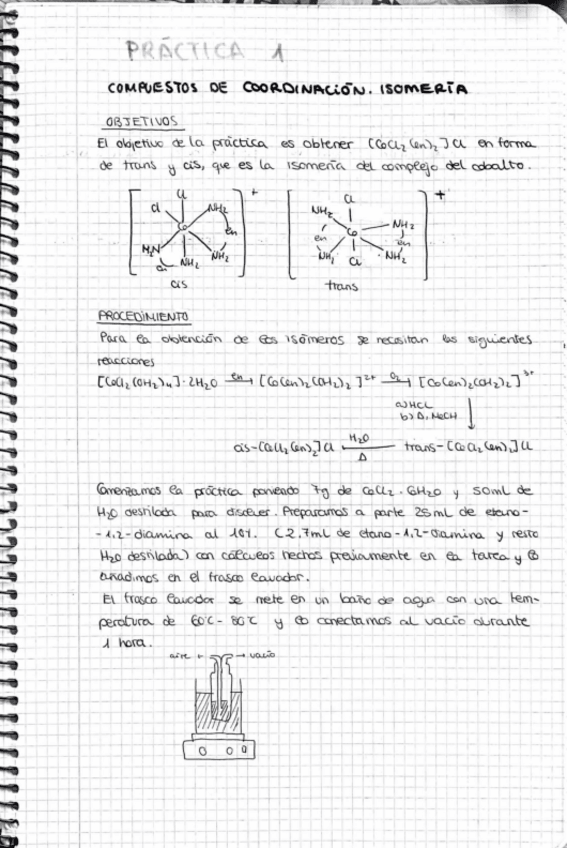 PRÁCTICA 1
COMPUESTOS DE COORDINACIÓN. ISOMERÍA
OBJETIVOS
El objetivo de la práctica es obtener [CoCl2(en)2]Cl en forma
de trans y cis, que es la isomería del complejo del cobalto.
[ ]+ [ ]+
Cl Cl
Cl NH2 NH2 NH2
Co Co
en en en
H2N NH2 NH2 NH2 NH2
en Cl
cis trans
PROCEDIMIENTO
Para la obtención de los isómeros se necesitan las siguientes
reacciones
[CoCl2(OH2)4]·2H2O en→ [Co(en)2(OH2)2]2+ O2→ [Co(en)2(OH2)2]3+
a) HCl
b) Δ, MeOH
cis-[CoCl2(en)2]Cl H2O Δ trans-[CoCl2(en)2]Cl
Comenzamos la práctica poniendo 7g de CoCl2·6H2O y 50mL de
H2O destilada para disolver. Preparamos a parte 25mL de etano-
-1,2-diamina al 10%. (2.7mL de etano-1,2-diamina y resto
H2O destilada) con cálculos hechos previamente en la tarea y lo
añadimos en el frasco lavador.
El frasco lavador se mete en un baño de agua con una tem-
peratura de 60ºC-80ºC y lo conectamos al vacío durante
1 hora.
aire ← → vacío